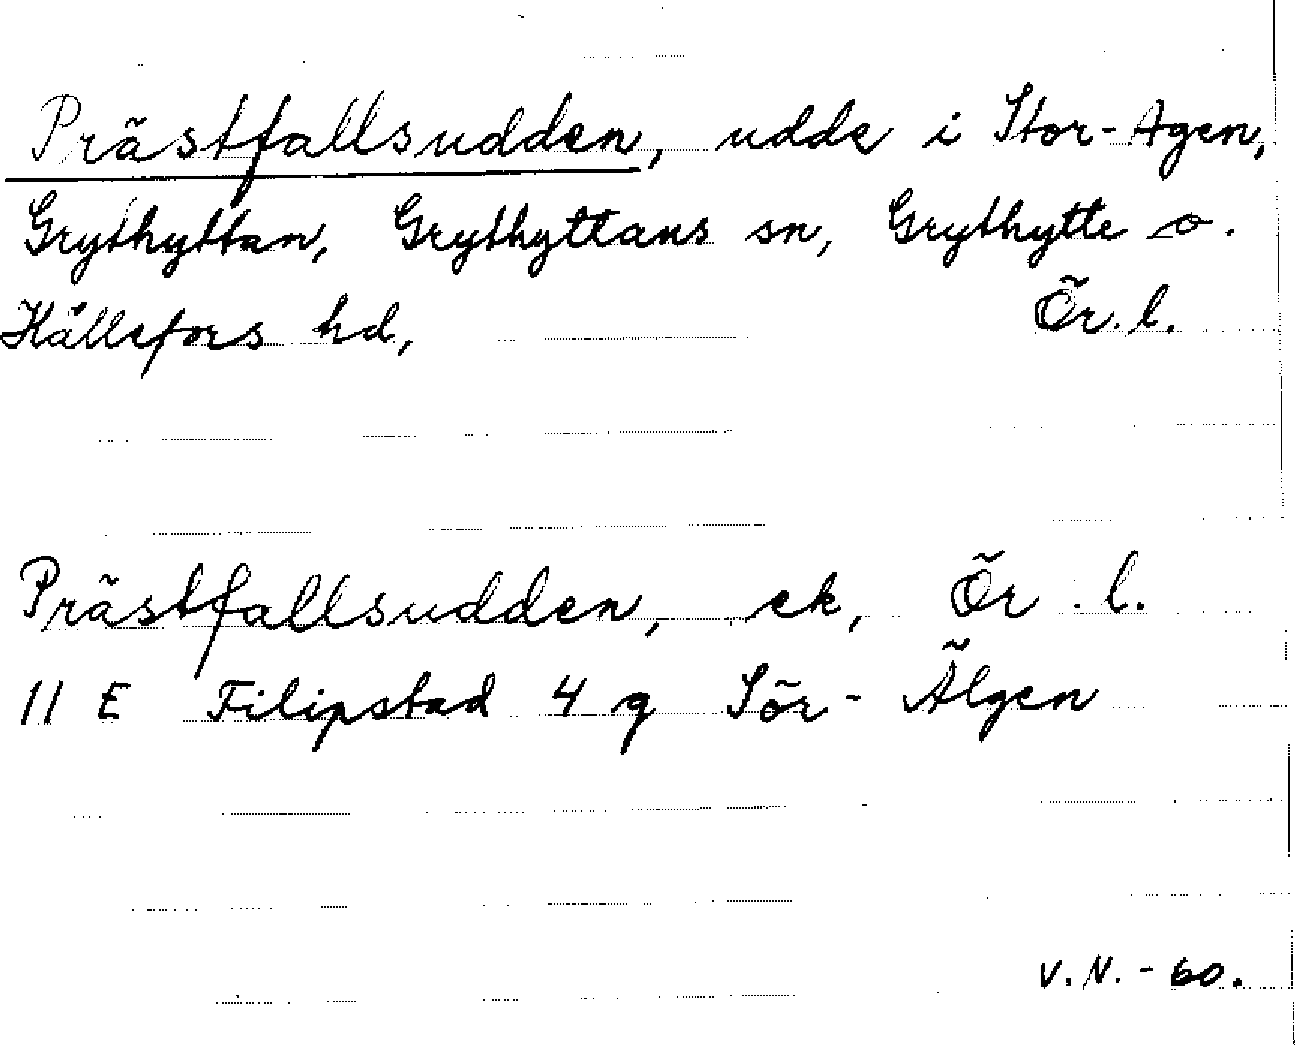 Prästfallsudden, udde i Stor-Agen,
Grythyttan, Grythyttans sn, Grythytte o.
Hällefors hd, Ör. l.
Prästfallsudden, ek, Ör. l.
11 E Filipstad 4 g Sör-Älgen
V.N. - 60.